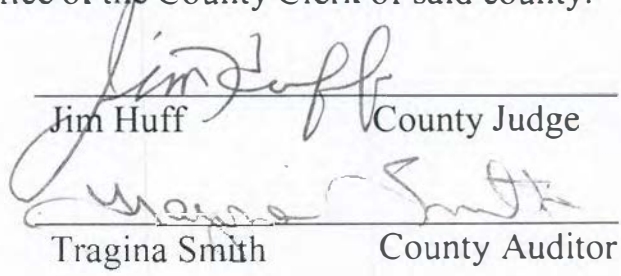 of the County Clerk of said county.
Jim Huff
Jim Huff County Judge
Tragina Smith
Tragina Smith County Auditor